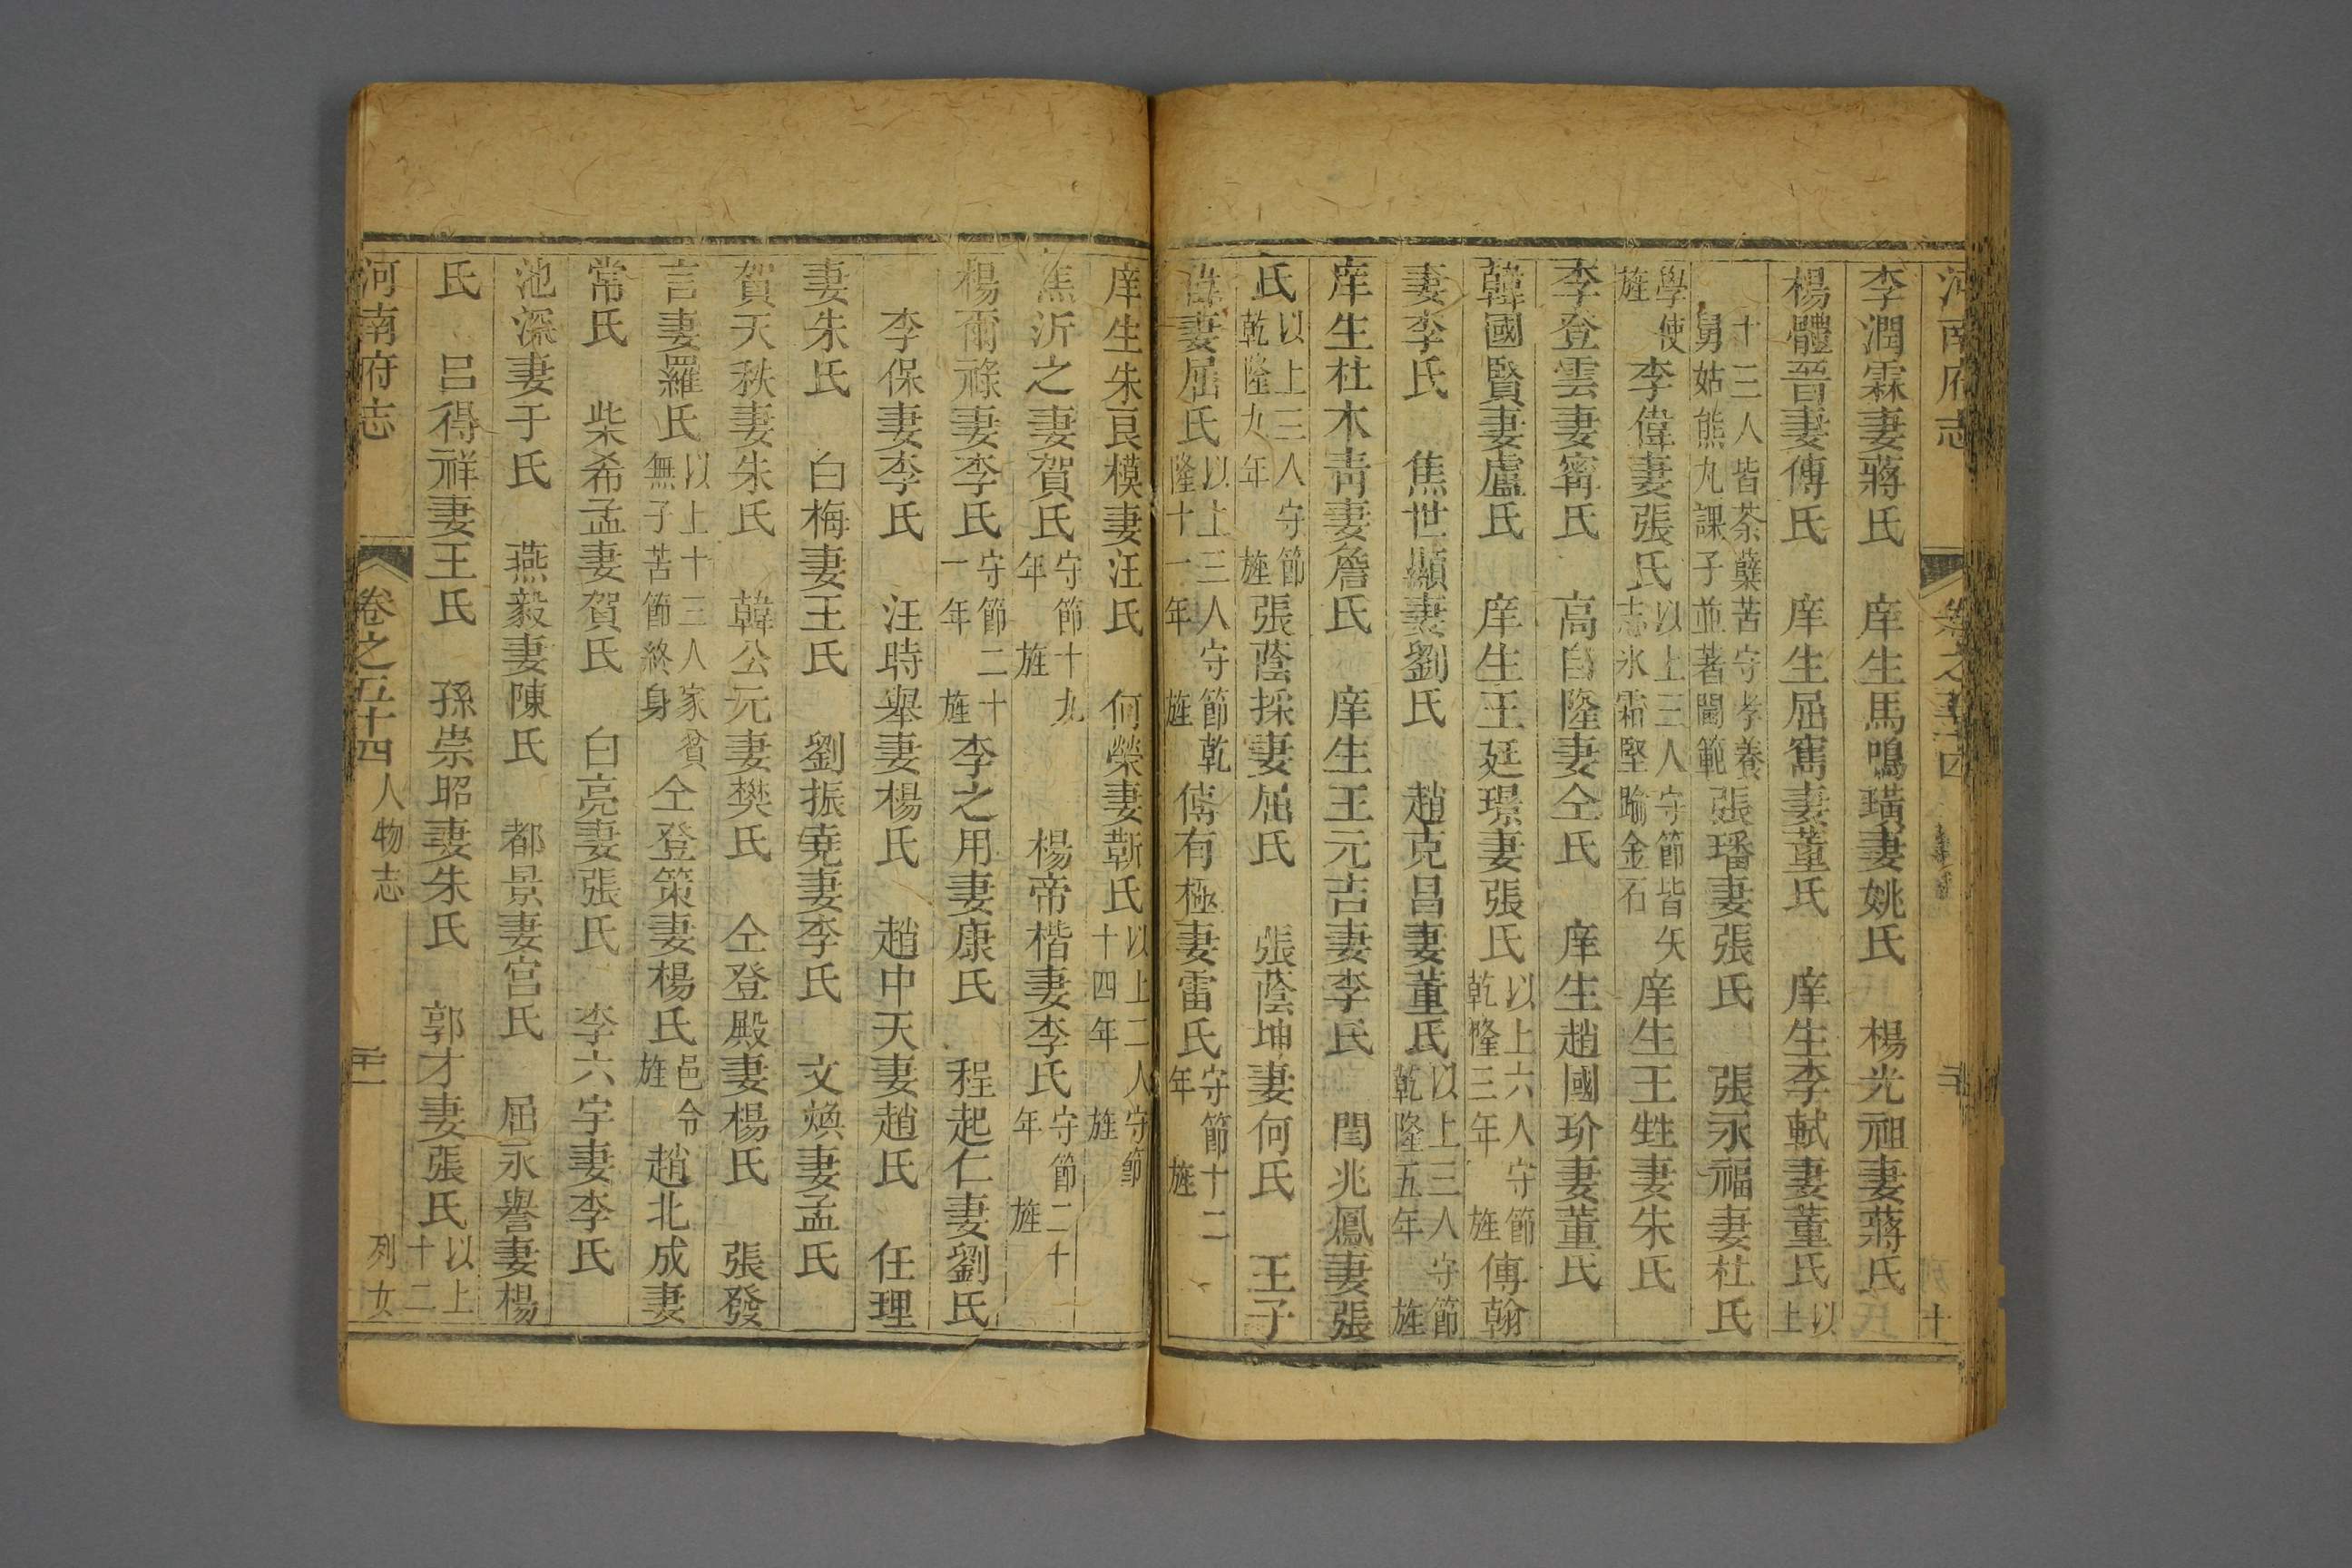 河南府志
李潤霖妻蔣氏　庠生馬鳴璜妻姚氏　楊光祖妻蔣氏
楊體晉妻傅氏　庠生屈寯妻董氏　庠生李軾妻董氏以上
十三人皆荼蘗苦守孝養舅姑熊九課子並著閫範張璠妻張氏　張永福妻杜氏
學使旌李偉妻張氏以上三人守節皆矢志氷霜堅踰金石庠生王甡妻朱氏
李登雲妻甯氏　高自隆妻仝氏　庠生趙國玠妻董氏
韓國賢妻盧氏　庠生王廷璟妻張氏以上六人守節乾隆三年旌傅翰
妻李氏　焦世顯妻劉氏　趙克昌妻董氏以上三人守節乾隆五年旌
庠生杜木青妻詹氏　庠生王元吉妻李氏　閆兆鳳妻張
氏以上三人守節乾隆九年旌張蔭採妻屈氏　張蔭坤妻何氏　王子
妻屈氏以上三人守節乾隆十一年旌傅有極妻雷氏守節十二年旌
庠生朱良模妻汪氏　何榮妻靳氏以上二人守節十四年旌
焦沂之妻賀氏守節十九年旌　楊帝楷妻李氏守節二十年旌
楊爾祿妻李氏守節二十一年旌李之用妻康氏　程起仁妻劉氏
李保妻李氏　汪時舉妻楊氏　趙中天妻趙氏　任理
妻朱氏　白梅妻王氏　劉振堯妻李氏　文煥妻孟氏
賀天秩妻朱氏　韓公元妻樊氏　仝登殿妻楊氏　張發
言妻羅氏以上十三人家貧無子苦節終身仝登策妻楊氏邑令旌趙北成妻
常氏　柴希孟妻賀氏　白亮妻張氏　李六宇妻李氏
池深妻于氏　燕毅妻陳氏　都景妻宮氏　屈永譽妻楊
氏　呂得祥妻王氏　孫崇昭妻朱氏　郭才妻張氏以上十二
河南府志　卷之五十四　人物志　列女